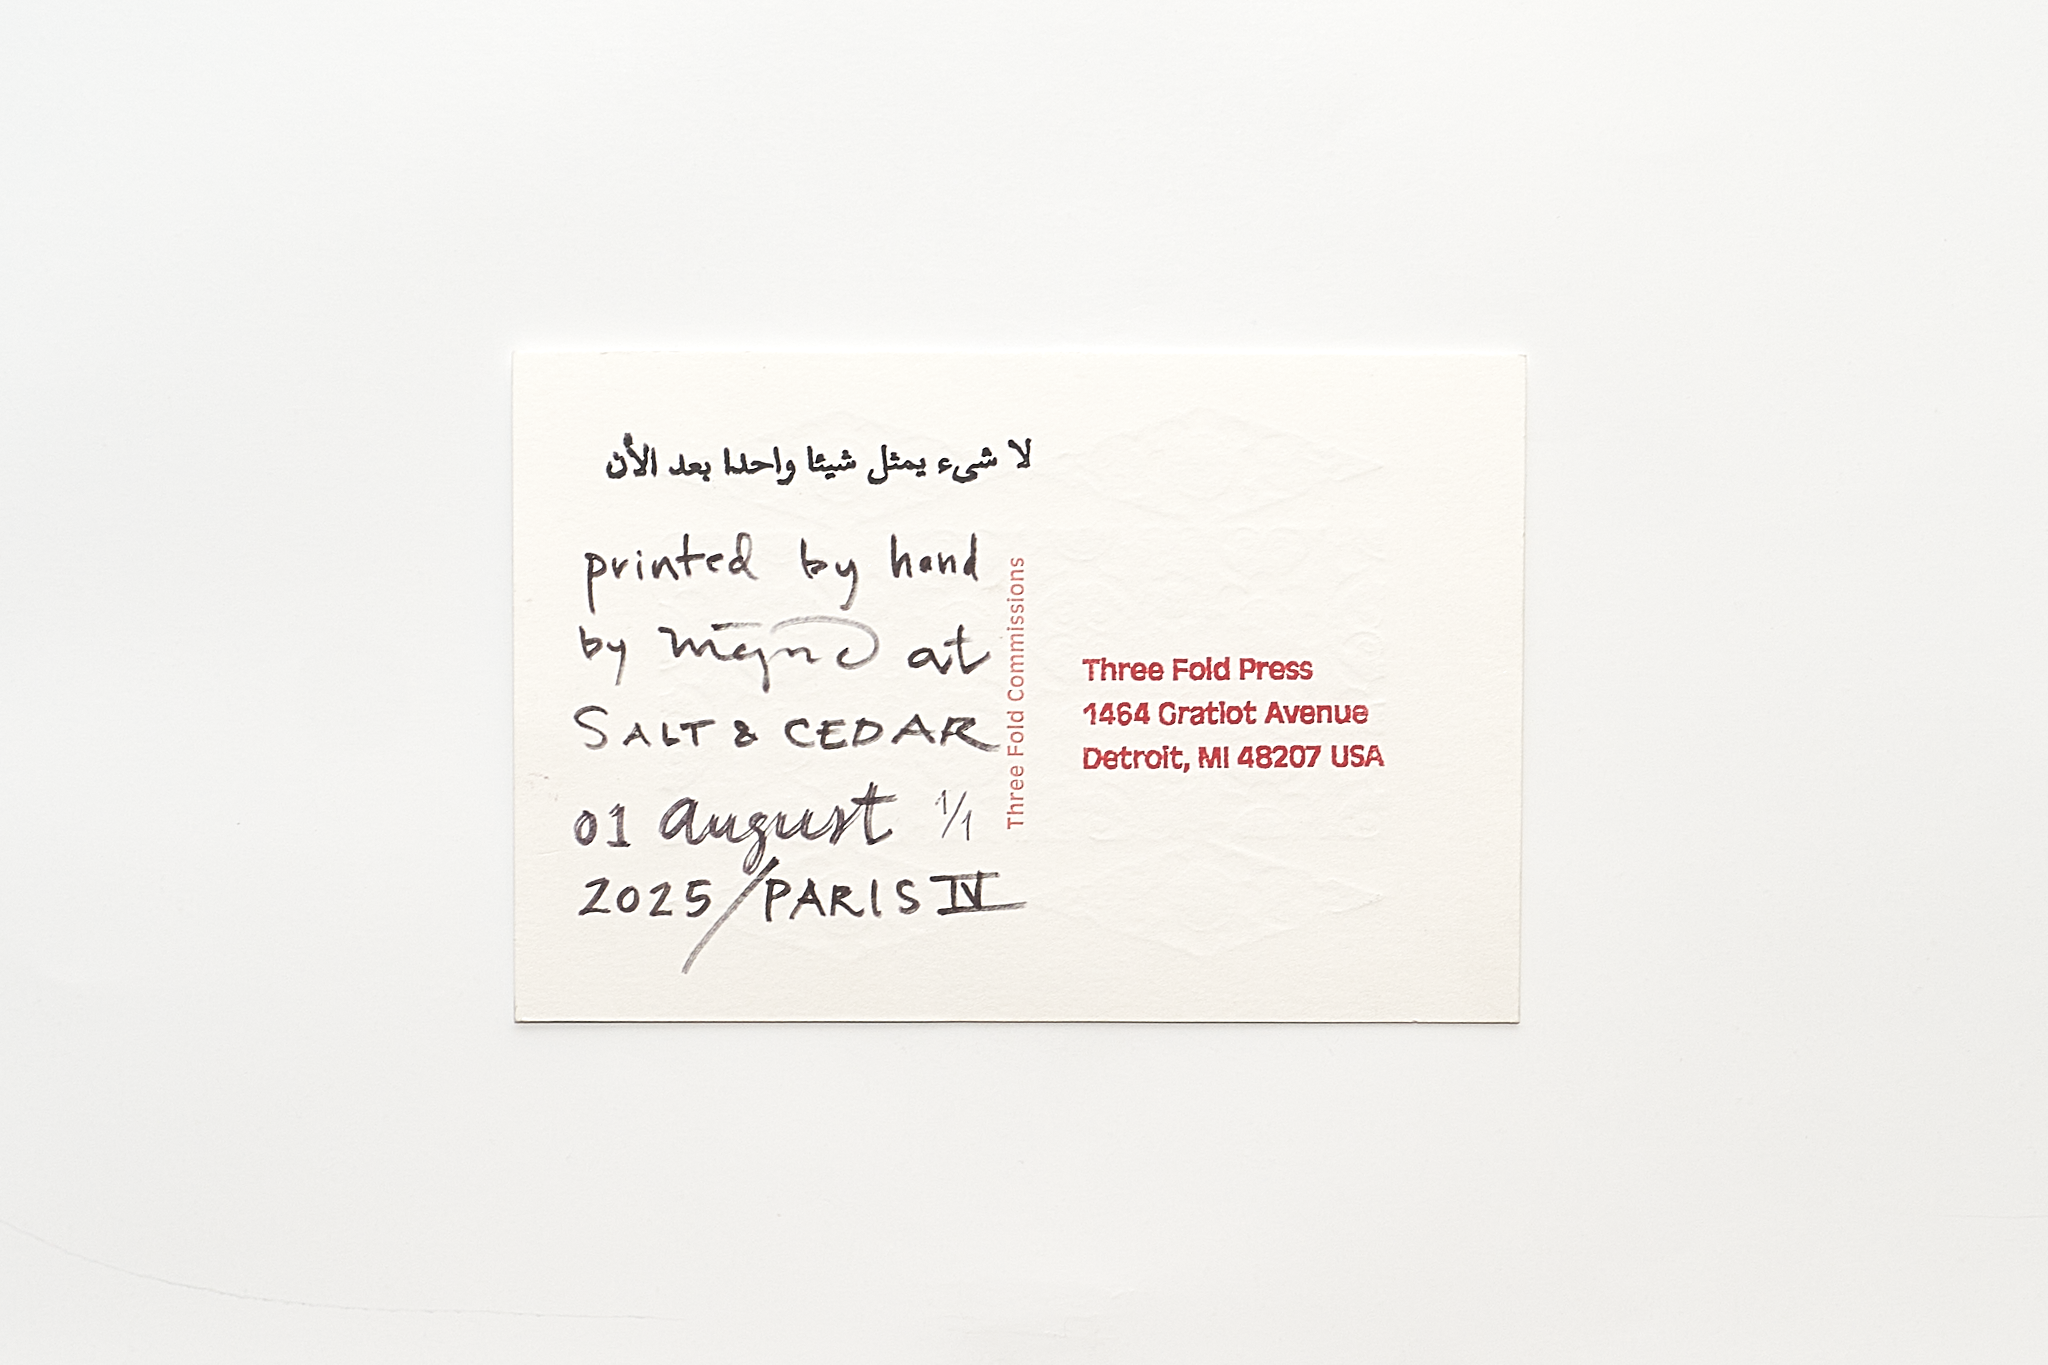 لا شىء يمثل شيئا واحدا بعد الأن
printed by hand
by at
SALT & CEDAR
01 august 1/1
2025/PARIS IV
Three Fold Commissions
Three Fold Press
1464 Gratiot Avenue
Detroit, MI 48207 USA